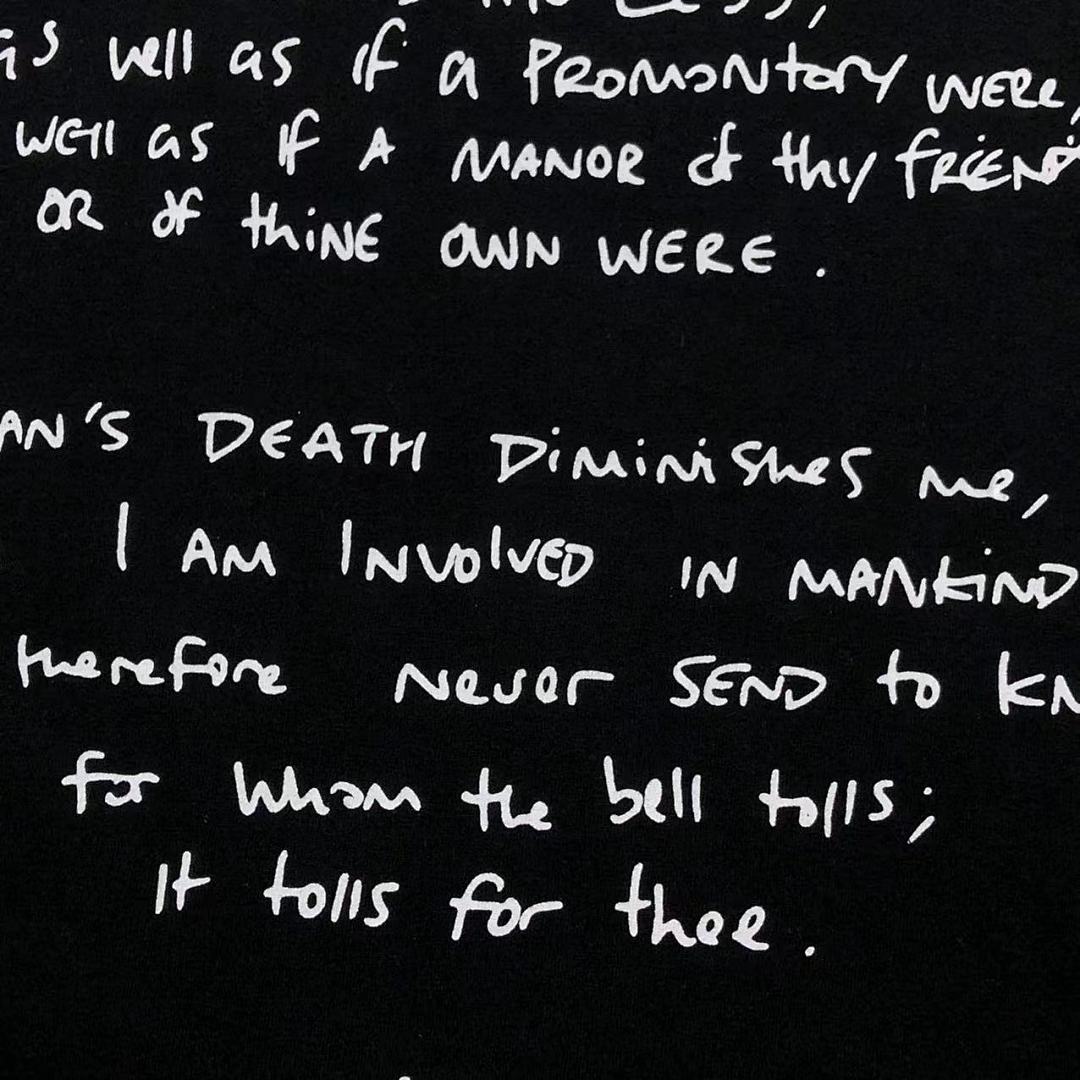 as well as if a PROMONtory WERE,
WEll as if A MANOR of thy fRiEND
OR of thiNE OWN WERE .
AN'S DEATH DiMiNiShes me,
I AM INVOlVED IN MANKiND
therefore Never SEND to KN
for whom the bell tolls;
It tolls for thee .